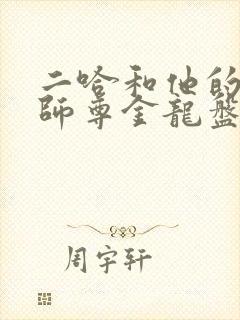 二哈和他的
師尊全龍盤
周宇轩